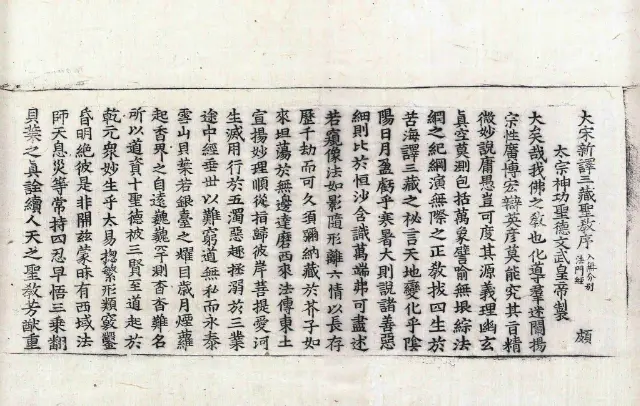 大宋新譯三藏聖教序 入無分別法門經 頗
太宗神功聖德文武皇帝製
大矣哉我佛之教也化導羣迷闡揚
宗性廣博宏辯英彥莫能究其旨精
微妙說庸愚豈可度其源義理幽玄
真空莫測包括萬象譬喻無垠綜法
網之紀綱演無際之正教拔四生於
苦海譯三藏之秘言天地變化乎陰
陽日月盈虧乎寒暑大則說諸善惡
細則比於恒沙含識萬端弗可盡述
若窺像法如影隨形離六情以長存
歷千劫而可久須彌納藏於芥子如
來坦蕩於無邊達磨西來法傳東土
宣揚妙理順從指歸彼岸菩提愛河
生滅用行於五濁惡趣拯溺於三業
途中經垂世以難窮道無私而永泰
雪山貝葉若銀臺之耀目歲月煙蘿
起香界之自遠巍巍罕測杳杳難名
所以道資十聖德被三賢至道起於
乾元衆妙生乎太易揔繁形類竅鑿
昏明絶彼是非開茲蒙昧有西域法
師天息災等常持四忍早悟三乘翻
貝葉之真詮續人天之聖教芳猷重